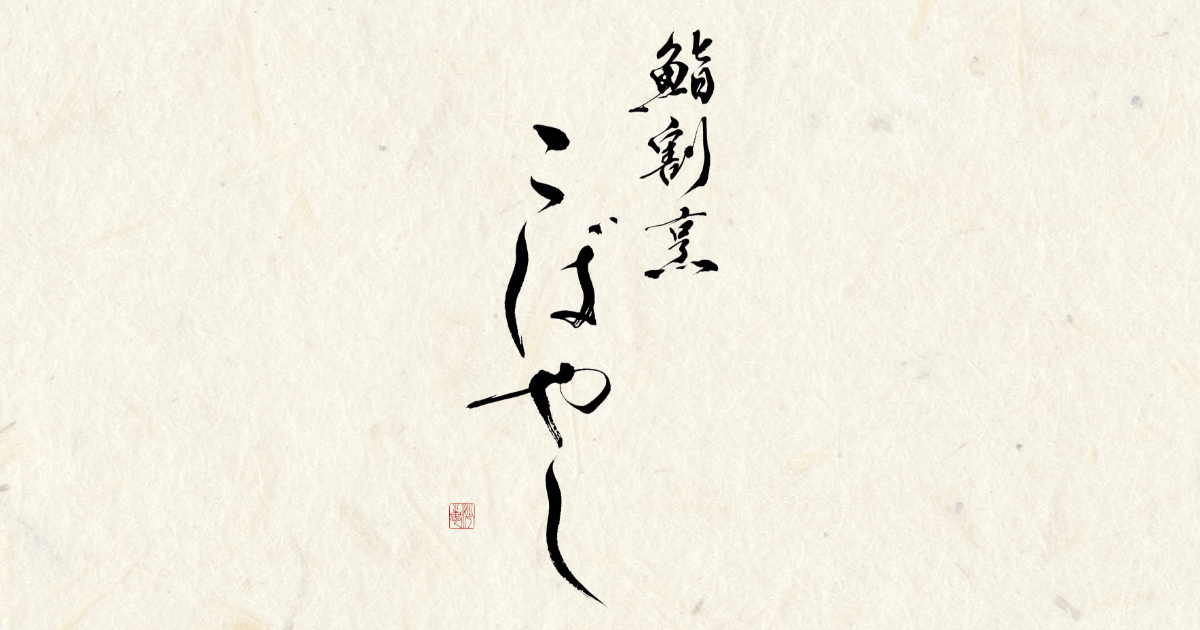 鮨割烹
こばやし